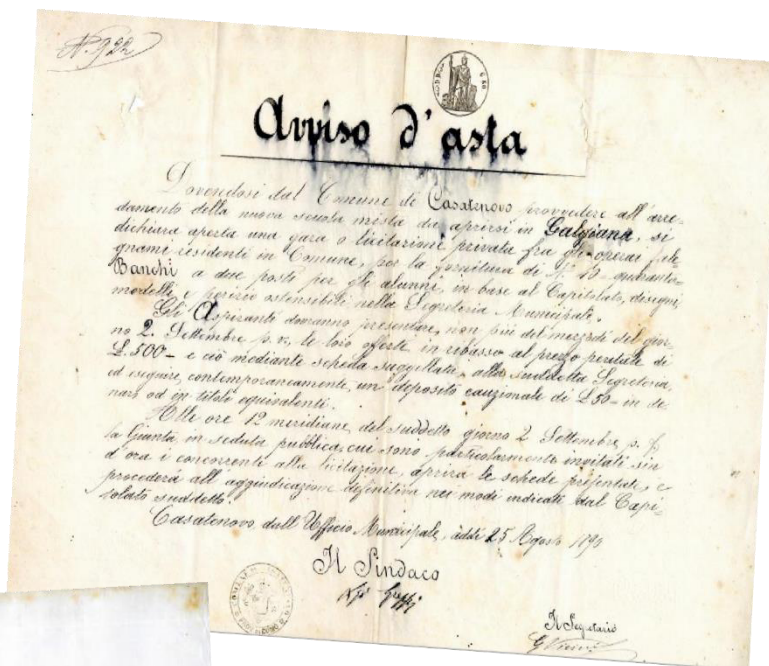 N. 922
Avviso d'asta
Dovendosi dal Comune di Casatenovo provvedere all'arre-
damento della nuova scuola mista da aprirsi in Galgiana, si
dichiara aperta una gara o licitazione privata fra gli operai fale-
gnami residenti in Comune, per la fornitura di N. 40 - quaranta -
Banchi a due posti per gli alunni, in base al Capitolato, disegni,
modelli e perizie ostensibili nella Segreteria Municipale.
Gli Aspiranti dovranno presentare, non più del mezzodì del gior-
no 2. Settembre p. v., le loro offerte in ribasso al prezzo peritale di
L. 500 - e ciò mediante scheda suggellata, alla suddetta Segreteria,
ed eseguire, contemporaneamente, un deposito cauzionale di L 50 - in de-
naro od in titoli equivalenti.
Alle ore 12 meridiane, del suddetto giorno 2 Settembre p. v.
la Giunta in seduta pubblica, cui sono particolarmente invitati sin
d'ora i concorrenti alla licitazione, aprirà le schede presentate, e
procederà all'aggiudicazione definitiva nei modi indicati dal Capi-
tolato suddetto.
Casatenovo dall'Ufficio Municipale, addì 25 Agosto
Il Sindaco
Il Segretario